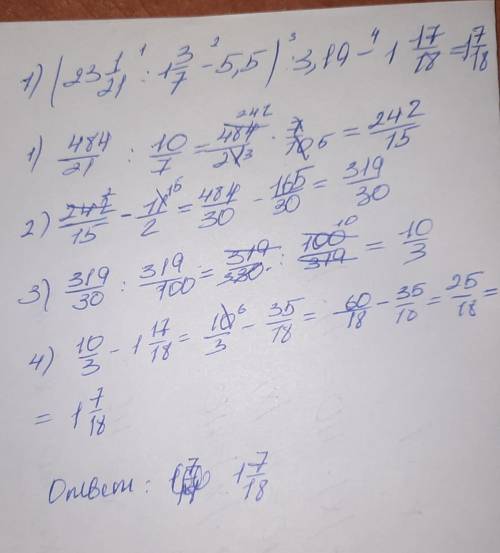 1) (23 1/21 : 1 3/7 - 5,5) : 3,19 - 1 17/18 = 1 7/18
1) 484/21 : 10/7 = 484/21 · 7/10 = 242/15
2) 242/15 - 11/2 = 484/30 - 165/30 = 319/30
3) 319/30 : 319/100 = 319/330 : 100/319 = 10/3
4) 10/3 - 1 17/18 = 10/3 - 35/18 = 60/18 - 35/18 = 25/18 =
= 1 7/18
Ответ: 1 7/18